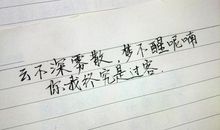 云不深雾散，梦不醒呢喃
你、我终究是过客.